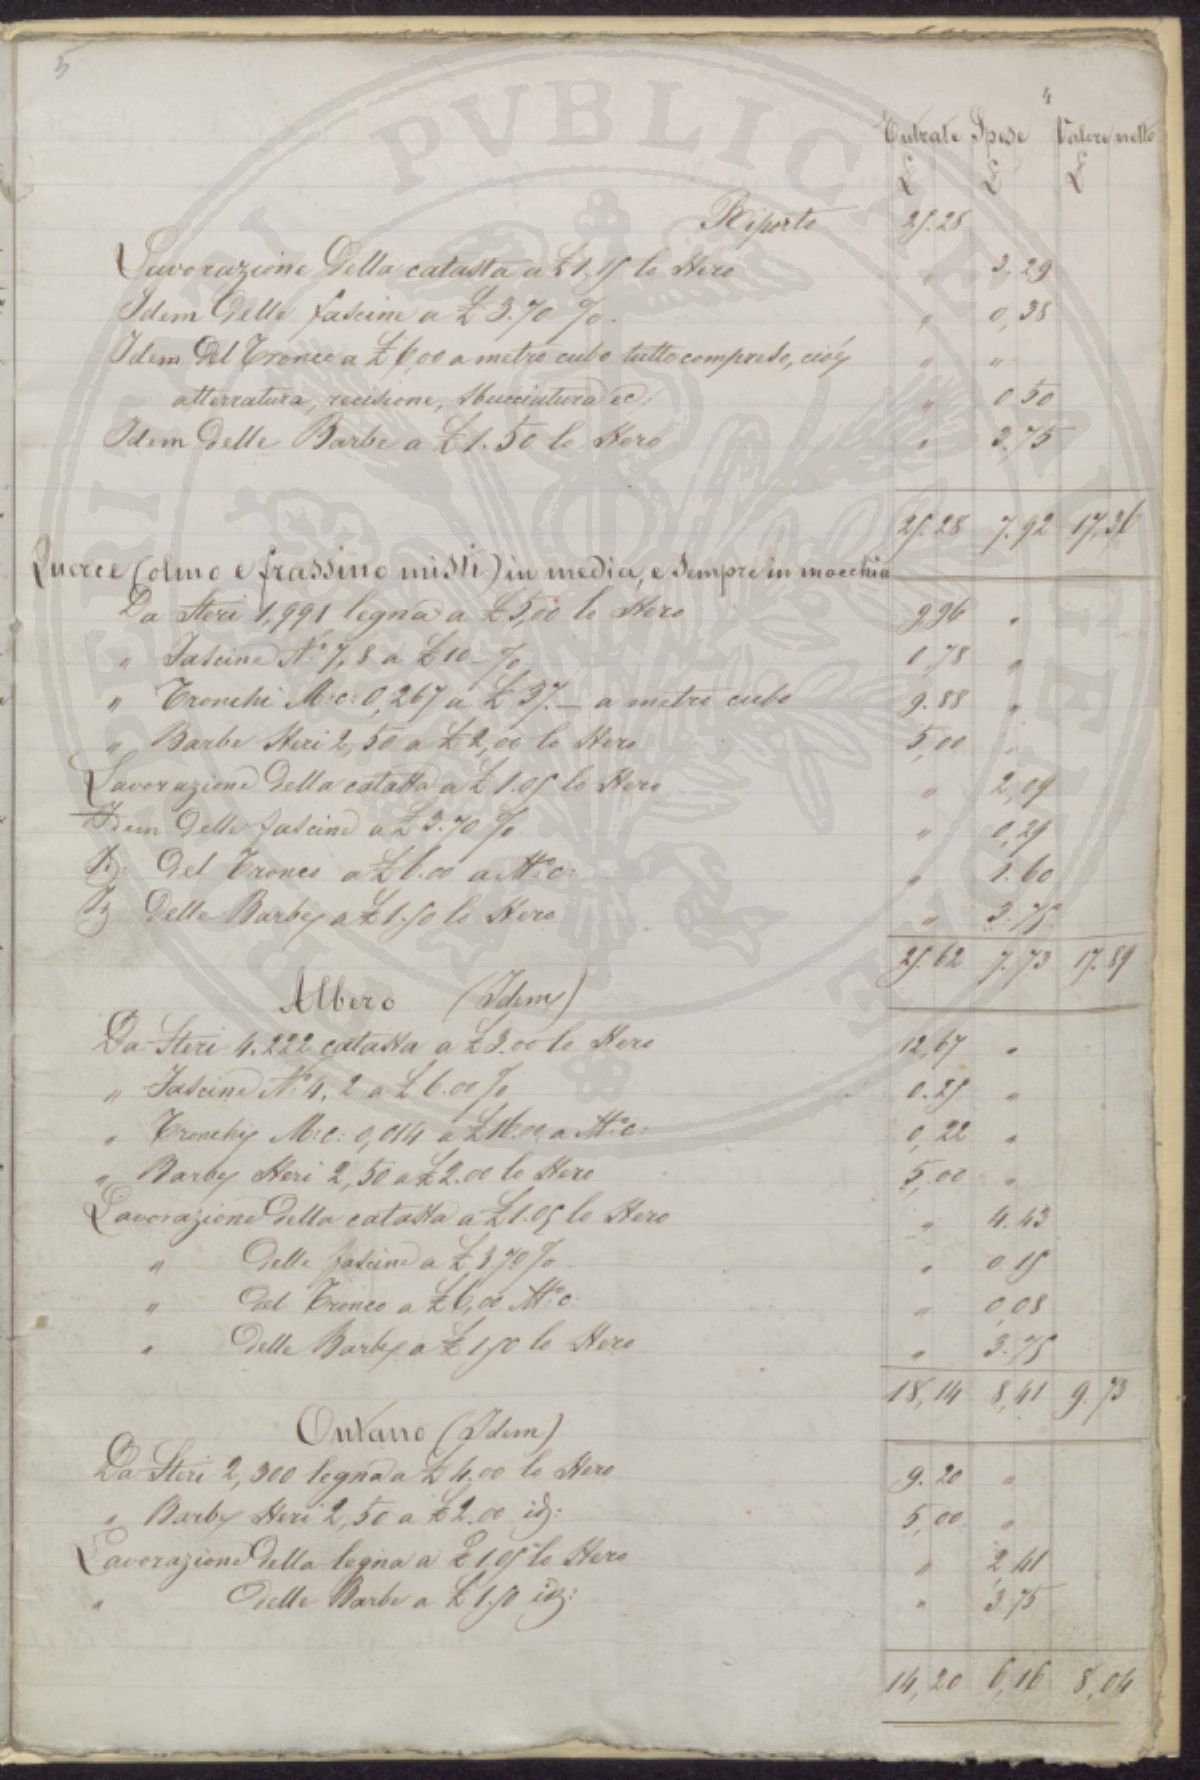 5
4
Entrate Spese Valore netto
£ £ £
Riporto 25.28
Lavorazione della catasta a £ 1.15 lo Stero " 3,29
Idem delle fascine a £ 3.70 % " 0,38
Idem del Tronco a £ 6,00 a metro cubo tutto compreso, cioè " "
atterratura, recisione, sbucciatura ec: " 0 50
Idem delle Barbe a £ 1.50 lo Stero " 3,75
25.28 7.92 17,36
Querce (olmo e frassino misti) in media, e sempre in macchia
Da Steri 1,991 legna a £ 5,00 lo Stero 9,96 "
" Fascine N.° 7,8 a £ 10 - % 0,78 "
" Tronchi M:c: 0,267 a £ 37.— a metro cubo 9.88 "
" Barbe Steri 2,50 a £ 2,00 lo Stero 5,00 "
Lavorazione della catasta a £ 1.05 lo Stero " 2,09
Idem delle fascine a £ 3.70 % " 0,29
Id: del Tronco a £ 6.00 a M.°c: " 1.60
Id delle Barbe a £ 1.50 lo Stero " 3.75
25.62 7.73 17.89
Albero (Idem)
Da Steri 4.222 catasta a £ 3.00 lo Stero 12,67 "
" Fascine N.° 4,2 a £ 6.00 % 0.25 "
" Tronchi M:c: 0,014 a £ 16.00 a M.°c: 0,22 "
" Barbe Steri 2,50 a £ 2.00 lo Stero 5,00 "
Lavorazione della catasta a £ 1.05 lo Stero " 4.43
" delle fascine a £ 3 70 % " 0 15
" del Tronco a £ 6,00 M.°c: " 0,08
" delle Barbe a £ 1,50 lo Stero " 3.75
18,14 8,41 9.73
Ontano (Idem)
Da Steri 2,300 legna a £ 4.00 lo Stero 9.20 "
" Barbe Steri 2,50 a £ 2.00 id: 5,00 "
Lavorazione della legna a £ 1.05 lo Stero " 2,41
" delle Barbe a £ 1.50 id: " 3.75
14,20 6,16 8,04